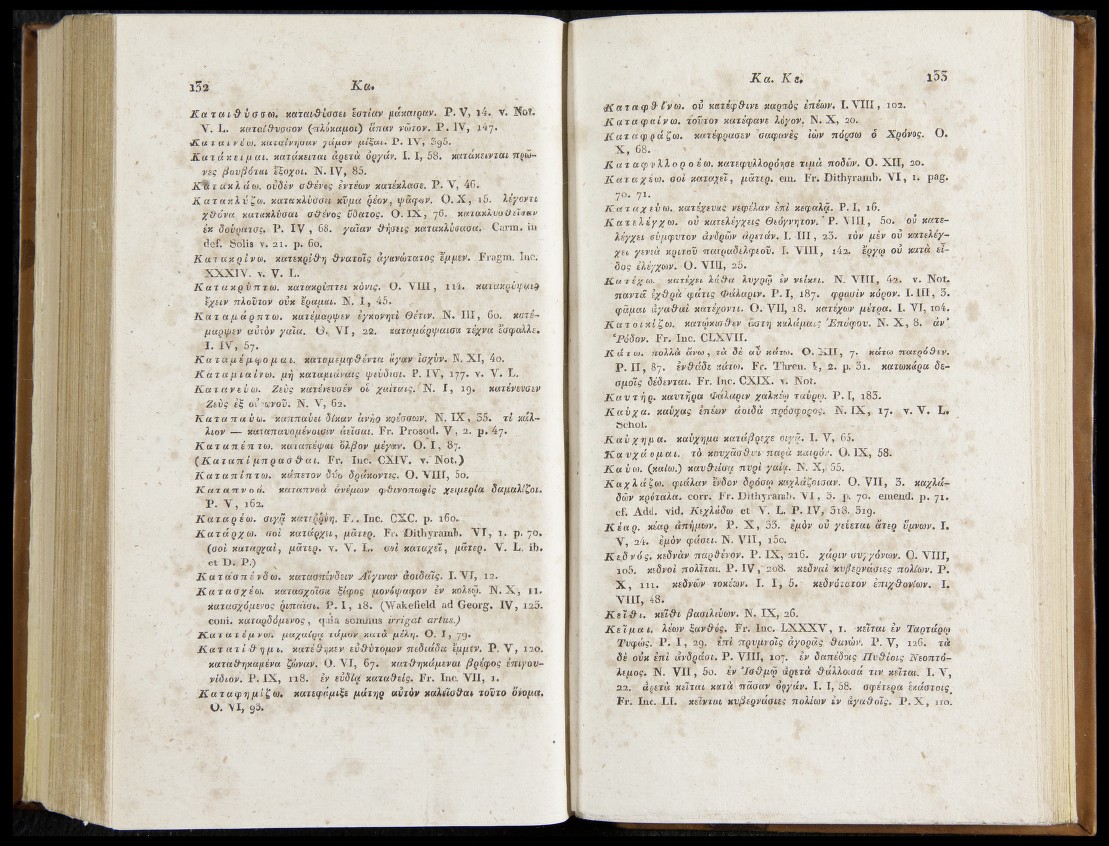 132 Κα.
Καταιθύσσω. καταιθύσσει ἑστίαν μάκαιραν. P. V, 14. v. Not.
V. L. καταίθυσσον (πλόκαμοι) ἅπαν νῶτον. P. IV, 147.
Καταινέω. καταίνησαν γάμον μίξαι. P. IV, 395.
Κατάκειμαι. κατάκειται ἀρετᾷ ὀργάν. I. I, 58. κατάκεινται πρῶ-
νες βουβόται ἔξοχοι. N. IV, 85.
Κατακλάω. οὐδὲν σθένος ἐντέων κατέκλασε. P. V, 46.
Κατακλύζω. κατακλύσσει κῦμα ῥέον, ψᾶφον. O. X, 15. λέγοντι
χθόνα κατακλύσαι σθένος ὕδατος. O. IX, 76. κατακλυσθεῖσαν
ἐκ δούρατος. P. IV, 68. γαῖαν θήσεις κατακλύσασα. Carm. in
def. Solis v. 21. p. 60.
Κατακρίνω. κατεκρίθη θνατοῖς ἀγανώτατος ἔμμεν. Fragm. Inc.
XXXIV. v. V. L.
Κατακρύπτω. κατακρύπτει κόνις. O. VIII, 114. κατακρύψαις
ἔχειν πλοῦτον οὐκ ἔραμαι. N. I, 45.
Καταμάρπτω. κατέμαρψεν ἐγκονητὶ Θέτιν. N. III, 60. κατέ-
μαρψεν αὐτὸν γαῖα. O. VI, 22. καταμάρψαισα τέχνα ἔσφαλλε.
I. IV, 57.
Καταμέμφομαι. καταμεμφθέντα ἄγαν ἰσχύν. N. XI, 40.
Καταμιαίνω. μὴ καταμιάναις ψεύδισι. P. IV, 177. v. V. L.
Κατανεύω. Ζεὺς κατένευσέν οἱ χαίταις. N. I, 19. κατένευσεν
Ζεὺς ἐξ οὐρανοῦ. N. V, 62.
Καταπαύω. καππαύει δίκαν ἀνὴρ κρέσσων. N. IX, 35. τί κάλ-
λιον — καταπαυομένοισιν ἀεῖσαι. Fr. Prosod. V, 2. p. 47.
Καταπέπτω. καταπέψαι ὄλβον μέγαν. O. I, 87.
(Καταπίμπρασθαι. Fr. Inc. CXIV. v. Not.)
Καταπίπτω. κάπετον δύο δράκοντες. O. VIII, 50.
Καταπνοά. καταπνοὰ ἀνέμων φθινοπωρὶς χειμερία δαμαλίζοι.
P. V, 162.
Καταρέω. σιγᾷ κατεῤῥύη. F.. Inc. CXC. p. 160.
Κατάρχω. σοὶ κατάρχει, μᾶτερ. Fr. Dithyramb. VI, 1. p. 70.
(σοὶ καταρχαὶ, μᾶτερ. v. V. L. σοὶ καταχεῖ, μᾶτερ. V. L. ib.
et D. P.)
Κατασπένδω. κατασπένδειν Αἴγιναν ἀοιδαῖς. I. VI, 12.
Κατασχέω. κατασχοῖσα ξίφος μονόψαφον ἐν κολεῷ. N. X, 11.
κατασχόμενος ῥιπαῖσι. P. I, 18. (Wakefield ad Georg. IV, 125.
coni. καταρδόμενος, quia somnus irrigat artus.)
Κατατέμνω. μαχαίρᾳ τάμον κατὰ μέλη. O. I, 79.
Κατατίθημι. κατέθηκεν εὐθύτομον πεδιάδα ἔμμεν. P. V, 120.
καταθηκαμένα ζώναν. O. VI, 67. κατθηκάμενοι βρέφος ἐπιγου-
νίδιον. P. IX, 118. ἐν εὐδίᾳ καταθείς. Fr. Inc. VII, 1.
Καταφημίζω. κατεφάμιξε μάτηρ αὐτὸν καλεῖσθαι τοῦτο ὄνομα.
O. VI, 93.
Κα. Κε. 133
Καταφθίνω. οὐ κατέφθινε καρπὸς ἐπέων. I. VIII, 102.
Καταφαίνω. τοῦτον κατέφανε λόγον. N. X, 20.
Καταφράζω. κατέφρασεν σαφανὲς ἰὼν πόρσω ὁ Χρόνος. O.
X, 68.
Καταφυλλοροέω. κατεφυλλορόησε τιμὰ ποδῶν. O. XII, 20.
Καταχέω. σοὶ καταχεῖ, μᾶτερ. em. Fr. Dithyramb. VI, 1. pag.
70. 71.
Καταχεύω. κατέχευας νεφέλαν ἐπὶ κεφαλᾷ. P. I, 16.
Κατελέγχω. οὐ κατελέγχεις Θεόγνητον. P. VIII, 50. οὐ κατε-
λέγχει σύμφυτον ἀνδρῶν ἀρετάν. I. III, 23. τὸν μὲν οὐ κατελέγ-
χει γενεὰ κριτοῦ πατραδελφεοῦ. I. VIII, 142. ἔργῳ οὐ κατὰ εἶ-
δος ἐλέγχων. O. VIII, 25.
Κατέχω. κατέχει λάθα λυγρῷ ἐν νείκει. N. VIII, 42. v. Not.
παντᾶ ἐχθρὰ φάτις Φάλαριν. P. I, 187. φρασὶν κόρον. I. III, 3.
φᾶμαι ἀγαθαὶ κατέχοντι. O. VII, 18. κατέχων μέτρα. I. VI, 104.
Κατοικίζω. κατῴκισθεν ἄστη παλάμαις Ἐπάφου. N. X, 8. ἀν'
Ῥόδον. Fr. Inc. CLXVII.
Κάτω. πολλὰ ἄνω, τὰ δὲ αὖ κάτω. O. XII, 7. κάτω πατρόθεν.
P. II, 87. ἐνθάδε κάτω. Fr. Thren. I, 2. p. 31. κατωκάρα δε-
σμοῖς δέδενται. Fr. Inc. CXIX. v. Not.
Καυτήρ. καυτῆρα Φάλαριν χαλκέῳ ταύρῳ. P. I, 183.
Καύχα. καύχας ἐπέων ἀοιδὰ πρόσφορος. N. IX, 17. v. V. L.
Schol.
Καύχημα. καύχημα κατάβρεχε σιγᾷ. I. V, 65.
Καυχάομαι. τὸ καυχᾶσθαι παρὰ καιρόν. O. IX, 58.
Καύω. (καίω.) καυθεῖσα πυρὶ γαῖα. N. X, 55.
Καχλάζω. φιάλαν ἔνδον δρόσῳ καχλάζοισαν. O. VII, 3. καχλά-
δων κρόταλα. corr. Fr. Dithyramb. VI, 3. p. 70. emend. p. 71.
cf. Add. vid. Κεχλάδω et V. L. P. IV, 318. 319.
Κέαρ. κέαρ ἀπήμων. P. X, 33. ἐμὸν οὐ γεύεται ἄτερ ὕμνων. I.
V, 24. ἐμὸν φάσει. N. VII, 150.
Κεδνός. κεδνὰν παρθένον. P. IX, 216. χάριν συγγόνων. O. VIII,
105. κεδνοὶ πολῖται. P. IV, 208. κεδναὶ κυβερνάσιες πολίων. P.
X, 111. κεδνῶν τοκέων. I. I, 5. κεδνότατον ἐπιχθονίων. I.
VIII, 48.
Κεῖθι. κεῖθι βασιλεύων. N. IX, 26.
Κεῖμαι. λέων ξανθός. Fr. Inc. LXXXV, 1. κεῖται ἐν Ταρτάρῳ
Τυφώς. P. I, 29. ἐπὶ πρυμνοῖς ἀγορᾶς θανών. P. V, 126. τὰ
δὲ οὐκ ἐπὶ ἀνδράσι. P. VIII, 107. ἐν δαπέδοις Πυθίοις Νεοπτό-
λεμος. N. VII, 50. ἐν Ἰσθμῷ ἀρετὰ θάλλοισά τιν κεῖται. I. V,
22. ἀρετᾷ κεῖται κατὰ πᾶσαν ὀργάν. I. I, 58. σφέτερα ἑκάστοις
Fr. Inc. LI. κεῖνται κυβερνάσιες πολίων ἐν ἀγαθοῖς. P. X, 110.